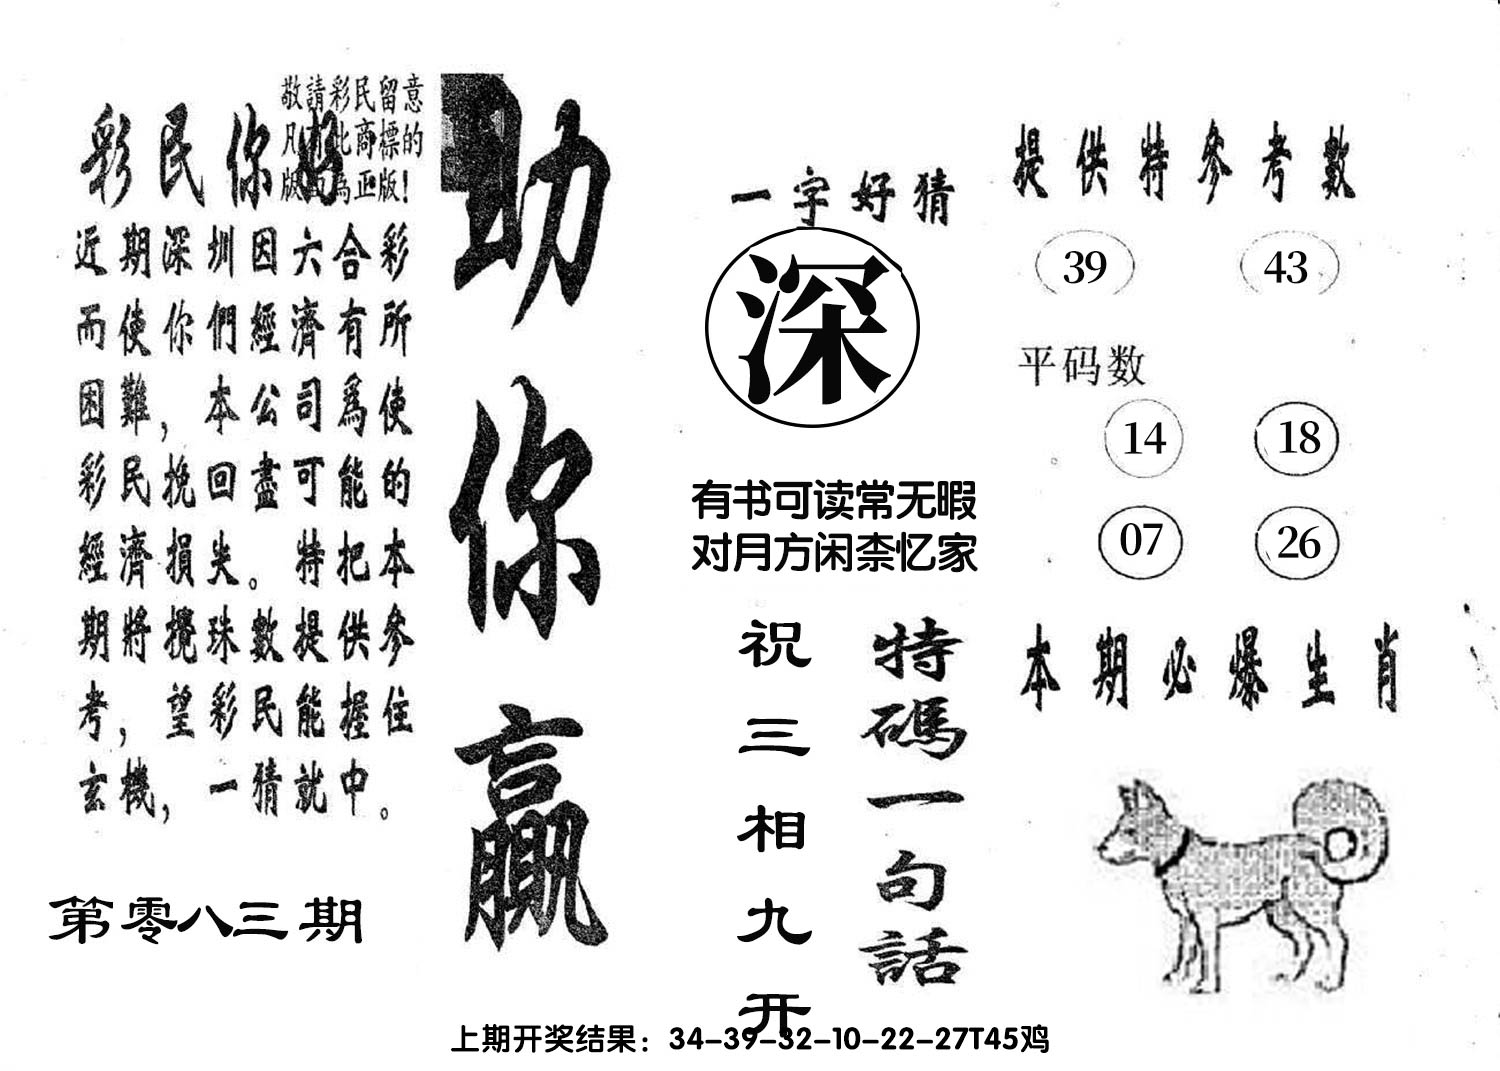 敬請彩民留意
凡有此商標的
版面為正版！
彩民你好
近期深圳因六合彩
而使你們經濟有所
困難，本公司爲使
彩民挽回盡可能的
經濟損失。特把本
期將攪珠數提供參
考，望彩民能握住
玄機，一猜就中。
第零八三期
助你贏
一字好猜
深
有书可读常无暇
对月方闲柰忆家
特碼一句話
祝三相九开
提供特參考數
39 43
平码数
14 18
07 26
本期必爆生肖
上期开奖结果：34-39-32-10-22-27T45鸡